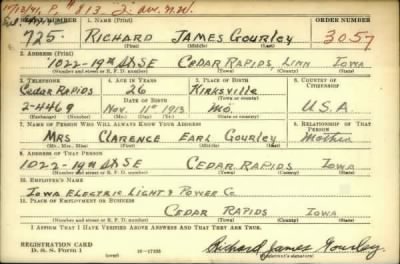 P. # 813 - 2: ave. N.W.
SERIAL NUMBER 1. NAME (Print) ORDER NUMBER
725. RICHARD JAMES GOURLEY 3057
(First) (Middle) (Last)
2. ADDRESS (Print)
1022-19th St SE CEDAR RAPIDS, LINN IOWA
(Number and street or R. F. D. number) (Town) (County) (State)
3. TELEPHONE 4. AGE IN YEARS 5. PLACE OF BIRTH 6. COUNTRY OF CITIZENSHIP
Cedar Rapids 26 KIRKSVILLE
DATE OF BIRTH (Town or county)
2-4469 Nov. 11th 1913 MO. U.S.A.
(Exchange) (Number) (Mo.) (Day) (Yr.) (State or country)
7. NAME OF PERSON WHO WILL ALWAYS KNOW YOUR ADDRESS 8. RELATIONSHIP OF THAT PERSON
MRS CLARENCE EARL GOURLEY Mother
(Mr., Mrs., Miss) (First) (Middle) (Last)
9. ADDRESS OF THAT PERSON
1022-19th St SE CEDAR RAPIDS IOWA
(Number and street or R. F. D. number) (Town) (County) (State)
10. EMPLOYER'S NAME
IOWA ELECTRIC LIGHT & POWER CO
11. PLACE OF EMPLOYMENT OR BUSINESS
CEDAR RAPIDS IOWA
(Number and street or R. F. D. number) (Town) (County) (State)
I AFFIRM THAT I HAVE VERIFIED ABOVE ANSWERS AND THAT THEY ARE TRUE.
REGISTRATION CARD
D. S. S. FORM 1 (over) 16-17105 Richard James Gourley
(Registrant's signature)